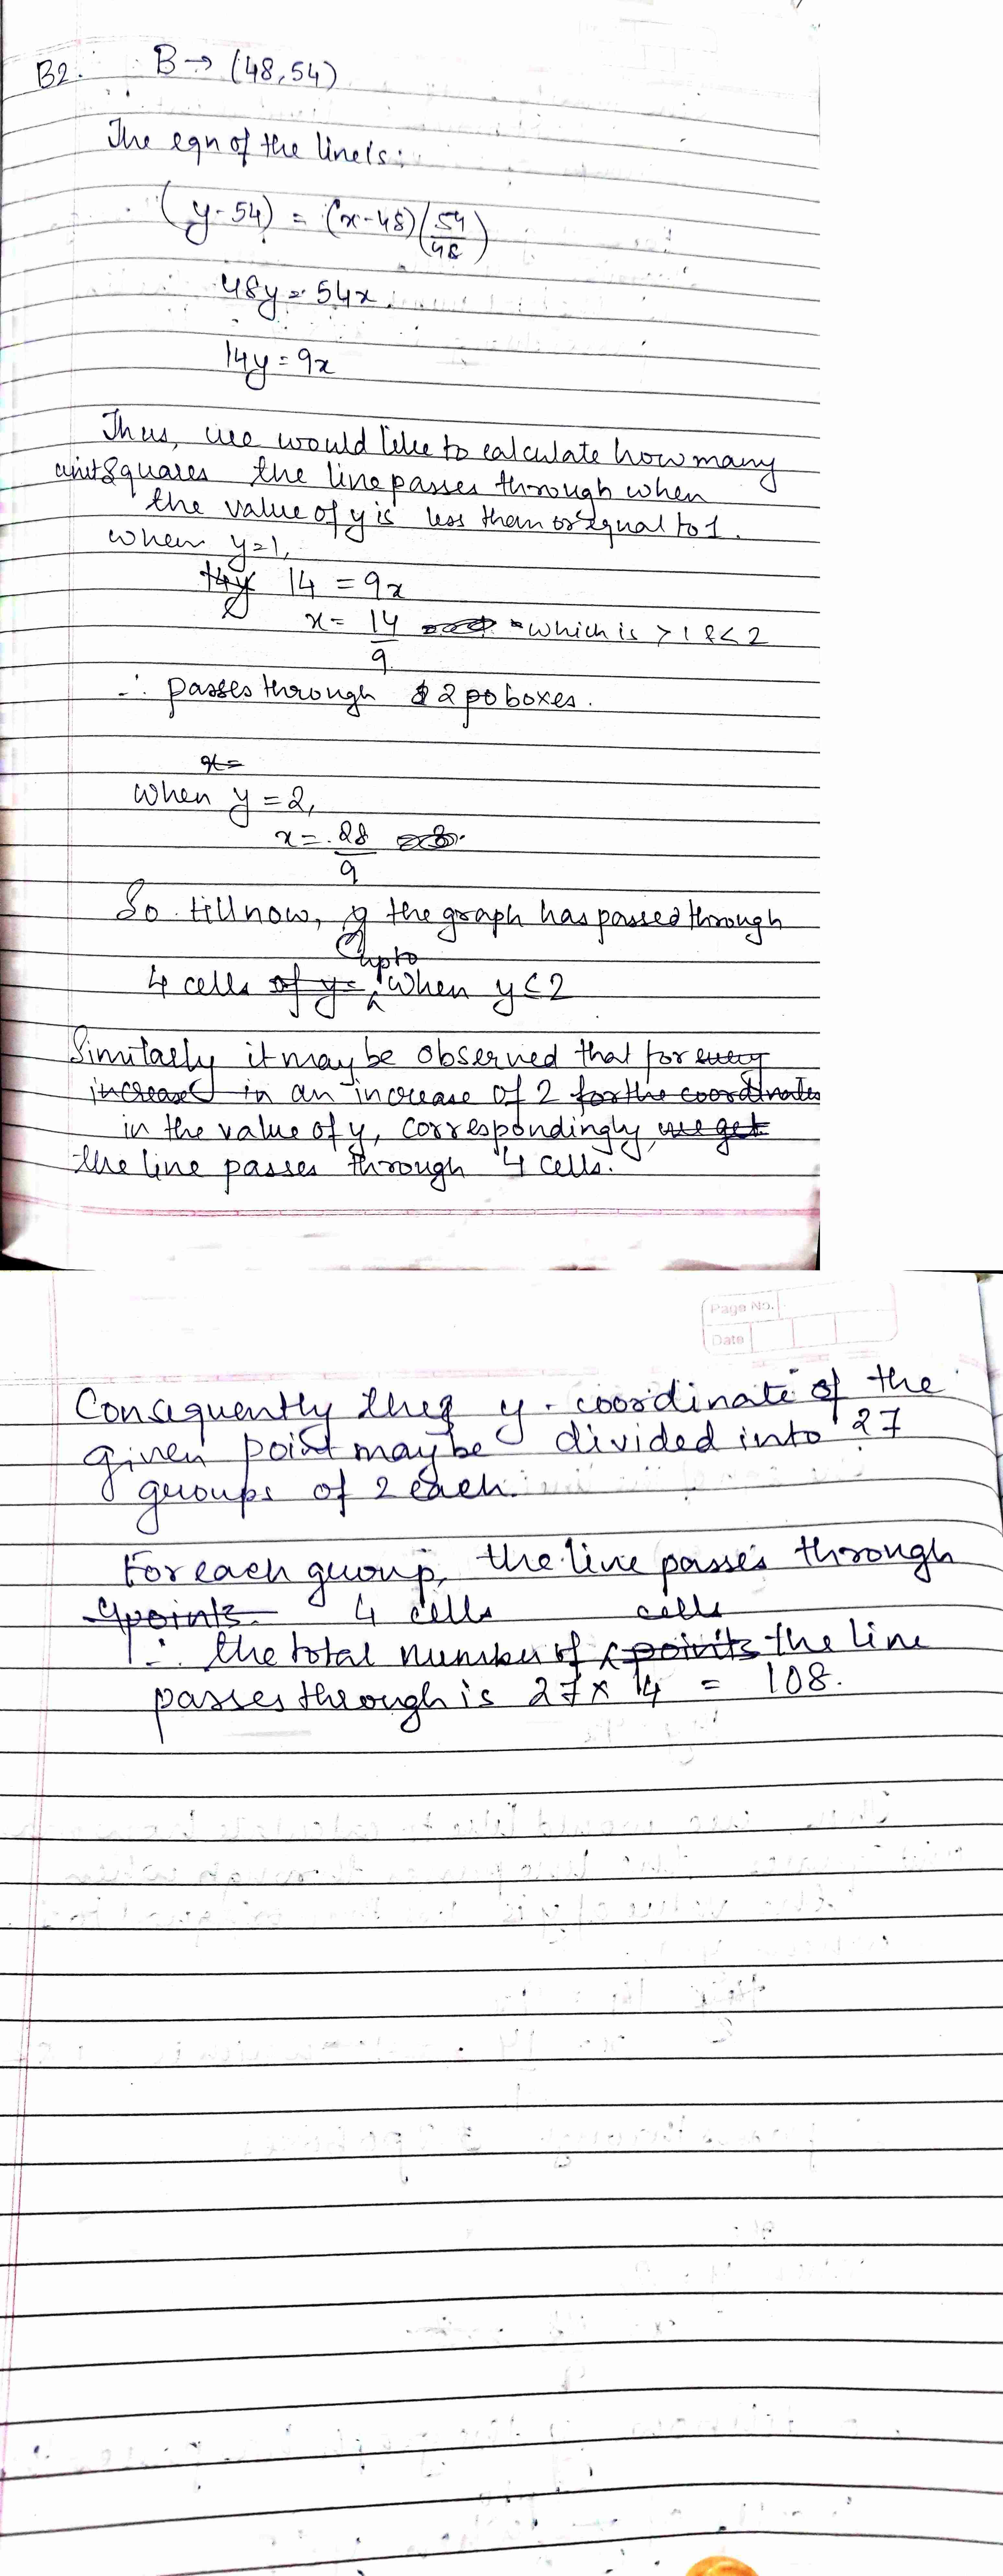 B2. B → (48,54)
The eqn of the line is:
(y-54) = (x-48)(54/48)
48y = 54x.
14y = 9x
Thus, we would like to calculate how many
unit squares the line passes through when
the value of y is less than or equal to 1.
when y=1,
14y 14 = 9x
x = 14/9 which is > 1 & < 2
∴ passes through 2 po boxes.
x =
when y = 2,
x = 28/9
So till now, y the graph has passed through
upto
4 cells of y= when y<2
Similarly it may be observed that for every
increase in an increase of 2 for the coordinates
in the value of y, correspondingly, we get
the line passes through 4 cells.
Page No.
Date
Consequently the y-coordinate of the
given point may be divided into 27
groups of 2 each.
For each group, the line passes through
4points. 4 cells cells
∴ the total number of points the line
passes through is 27 × 4 = 108.